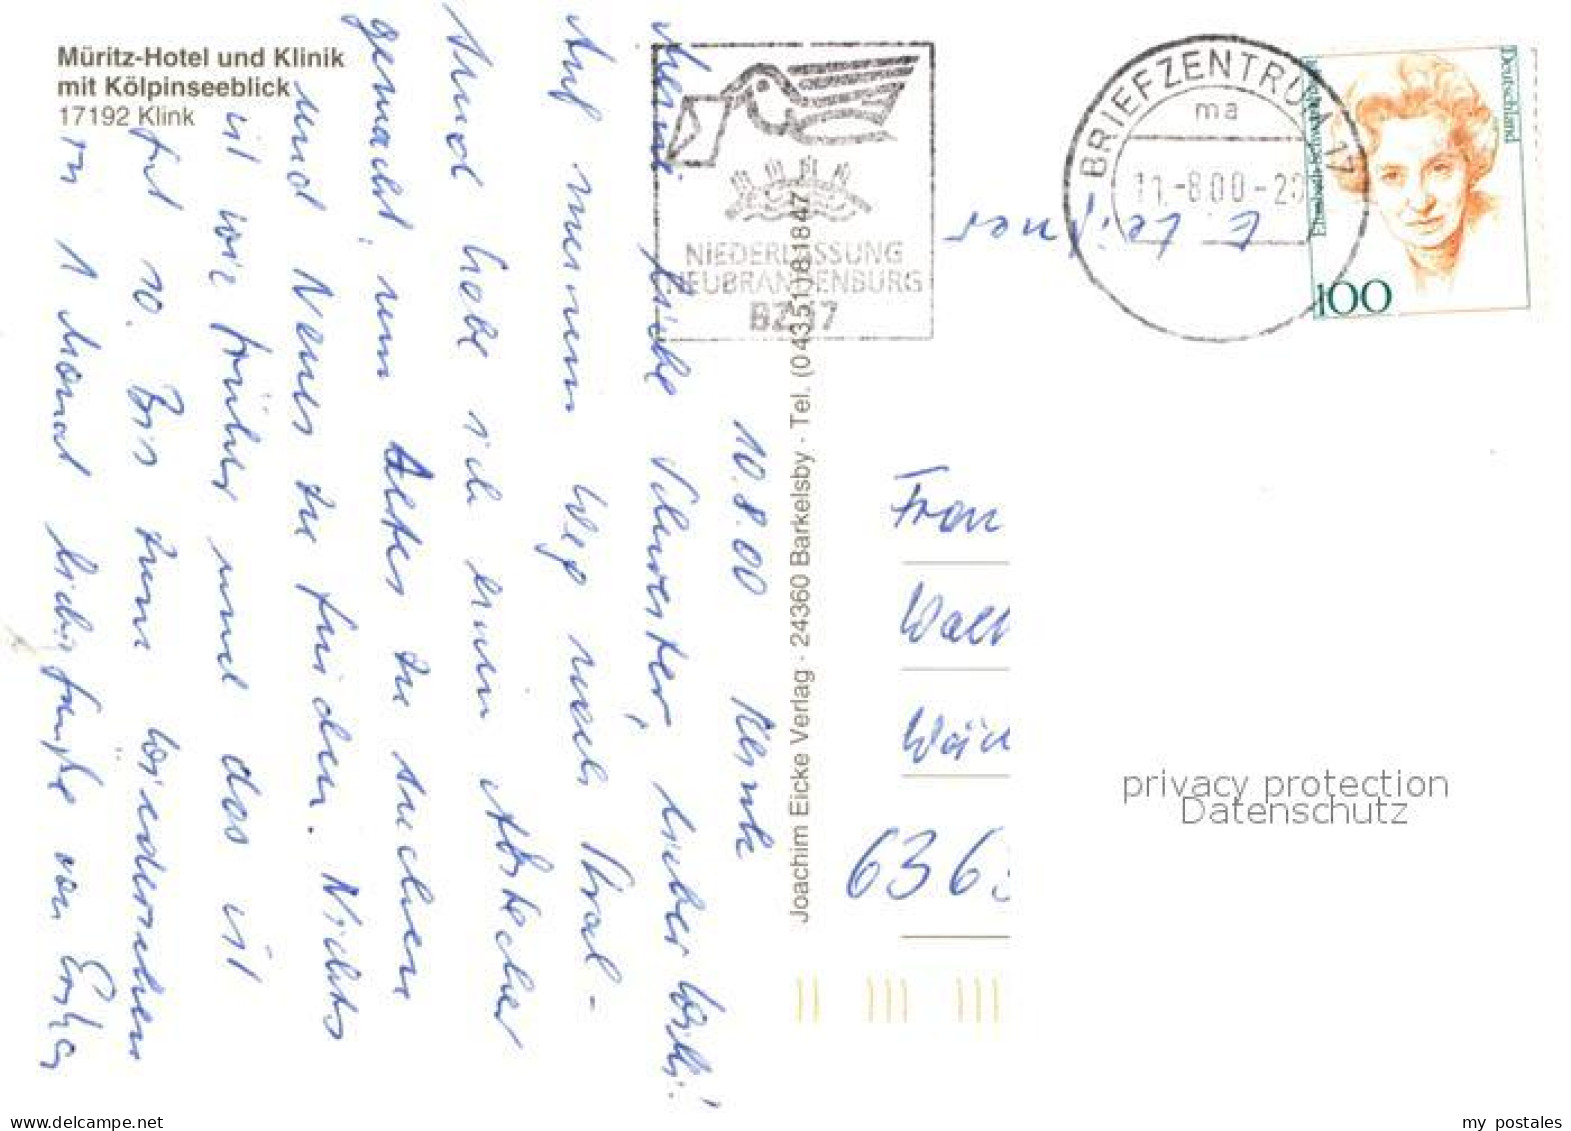 Müritz-Hotel und Klinik
mit Kölpinseeblick
17192 Klink
10.8.00 Klink
Meine Schwester, lieber Willi!
Auf meinem Weg nach Stral-
sund habe ich einen Abstecher
gemacht, um Altes zu suchen
und Neues zu finden. Nichts
ist wie früher und das ist
gut so. Bis zum Wiedersehen
in 1 Monat von
Joachim Eicke Verlag · 24360 Barkelsby · Tel. (04351) 81847
NIEDERLASSUNG
NEUBRANDENBURG
BZ 17
BRIEFZENTRUM 17
ma
11.-8.00-20
Deutschland
Elisabeth Schwarzhaupt
100
Frau
Walt
Wäch
6363
privacy protection
Datenschutz
www.delcampe.net
my_postales